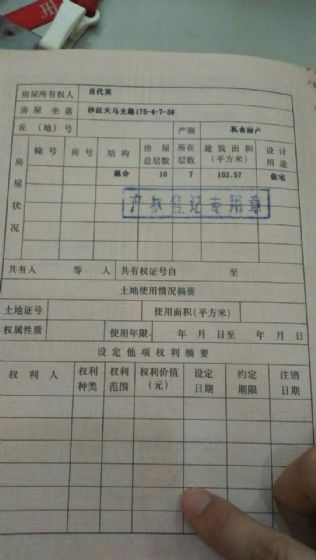 房屋所有权人 肖代英
房屋坐落 沙区天马支路175-4-7-3#
丘（地）号 产别 私有房产
房屋状况
幢号 房号 结构 房屋总层数 所在层数 建筑面积（平方米） 设计用途
混合 10 7 102.57 住宅
产权登记专用章
共有人 等 人 共有权证号自 至
土地使用情况摘要
土地证号 使用面积（平方米）
权属性质 使用年限 年 月 日至 年 月 日
设定他项权利摘要
权利人 权利种类 权利范围 权利价值（元） 设定日期 约定期限 注销日期